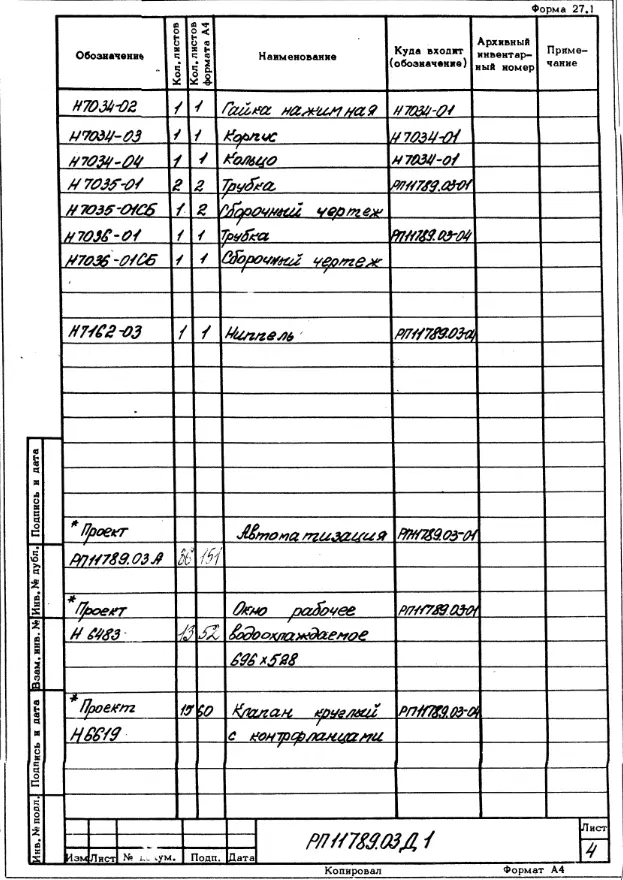 Форма 27.1
Обозначение Кол. листов Кол. листов формата А4 Наименование Куда входит (обозначение) Архивный инвентарный номер Примечание
Н7034-02 1 1 Гайка нажимная Н7034-01
Н7034-03 1 1 Корпус Н7034-01
Н7034-04 1 1 Кольцо Н7034-01
Н7035-01 2 2 Трубка РП11789.03-01
Н7035-01СБ 1 2 Сборочный чертеж
Н7036-01 1 1 Трубка РП11789.03-04
Н7036-01СБ 1 1 Сборочный чертеж
Н7162-03 1 1 Ниппель РП11789.03-01
* Проект Автоматизация РП11789.03-01
РП11789.03А 86 151
* Проект Окно рабочее РП11789.03-01
Н 6483 13 52 водоохлаждаемое
696×528
* Проект 15 60 Клапан круглый РП11789.03-04
Н6619 с контрфланцами
Инв. № подл. Подпись и дата Взам. инв. № Инв. № дубл. Подпись и дата
РП11789.03Д1
Лист
4
Изм Лист Подп. Дата
Копировал Формат А4